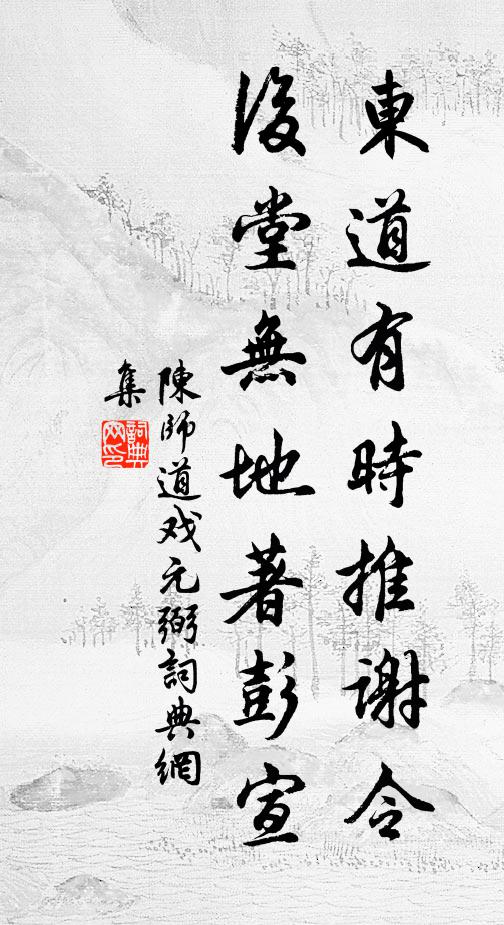 東道有時推謝令
後堂無地著彭宣
陳師道戏元弼詞典網
集
詞典網印